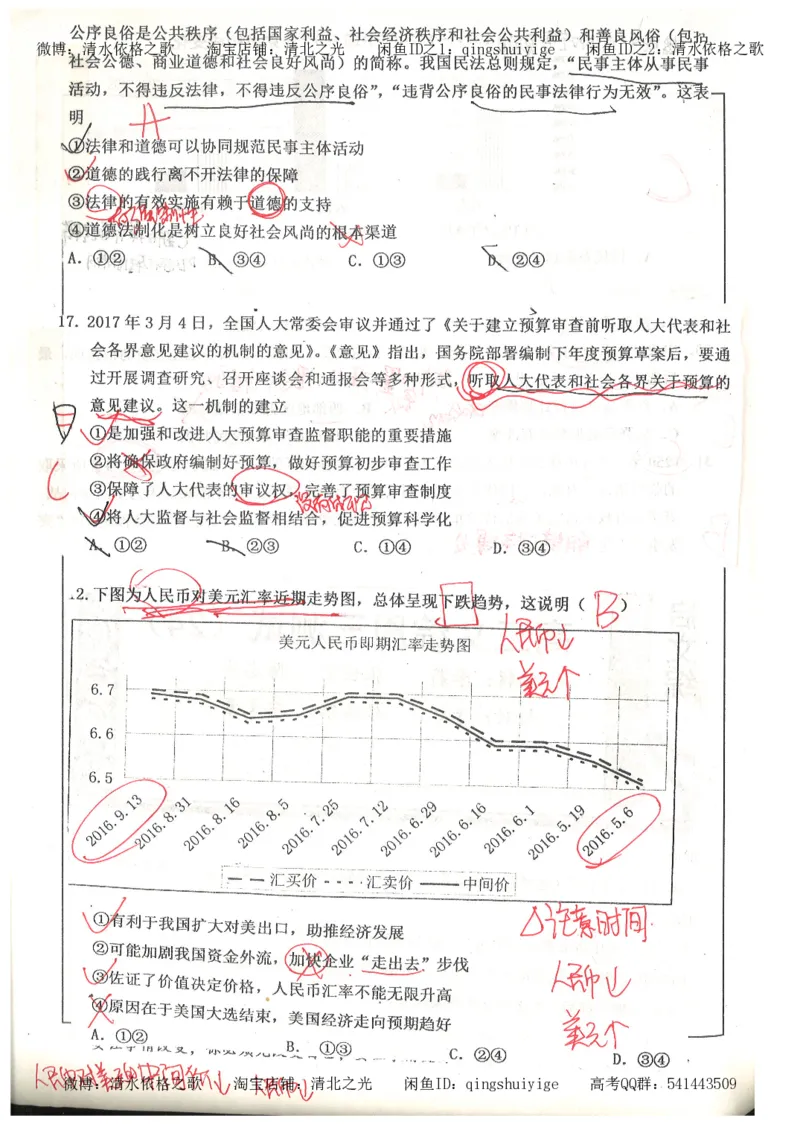 公序良俗是公共秩序（包括国家利益、社会经济秩序和社会公共利益）和善良风俗（包括
微博：清水依格之歌 淘宝店铺：清北之光 闲鱼ID之1：qingshuiyige 闲鱼ID之2：清水依格之歌
社会公德、商业道德和社会良好风尚）的简称。我国民法总则规定，“民事主体从事民事
活动，不得违反法律，不得违反公序良俗”，“违背公序良俗的民事法律行为无效”。这表
明
A
①法律和道德可以协同规范民事主体活动
②道德的践行离不开法律的保障
③法律的有效实施有赖于道德的支持
④道德法制化是树立良好社会风尚的根本渠道
A．①② B．③④ C．①③ D．②④
17．2017年3月4日，全国人大常委会审议并通过了《关于建立预算审查前听取人大代表和社
会各界意见建议的机制的意见》。《意见》指出，国务院部署编制下年度预算草案后，要通
过开展调查研究、召开座谈会和通报会等多种形式，听取人大代表和社会各界关于预算的
意见建议。这一机制的建立
①是加强和改进人大预算审查监督职能的重要措施
②将确保政府编制好预算，做好预算初步审查工作
C ③保障了人大代表的审议权，完善了预算审查制度
④将人大监督与社会监督相结合，促进预算科学化
A．①② B．②③ C．①④ D．③④
.2．下图为人民币对美元汇率近期走势图，总体呈现下跌趋势，这说明（ B ）
美元人民币即期汇率走势图
人民币↓
美元个
6.7
6.6
6.5
2016.9.13 2016.8.31 2016.8.16 2016.8.5 2016.7.25 2016.7.12 2016.6.29 2016.6.16 2016.6.1 2016.5.19 2016.5.6
汇买价 汇卖价 中间价
①有利于我国扩大对美出口，助推经济发展
△注意时间
②可能加剧我国资金外流，加快企业“走出去”步伐
③佐证了价值决定价格，人民币汇率不能无限升高
人民币↓
④原因在于美国大选结束，美国经济走向预期趋好
美元个
A．①② B．①③ C．②④ D．③④
微博：清水依格之歌 淘宝店铺：清北之光 闲鱼ID：qingshuiyige 高考QQ群：541443509